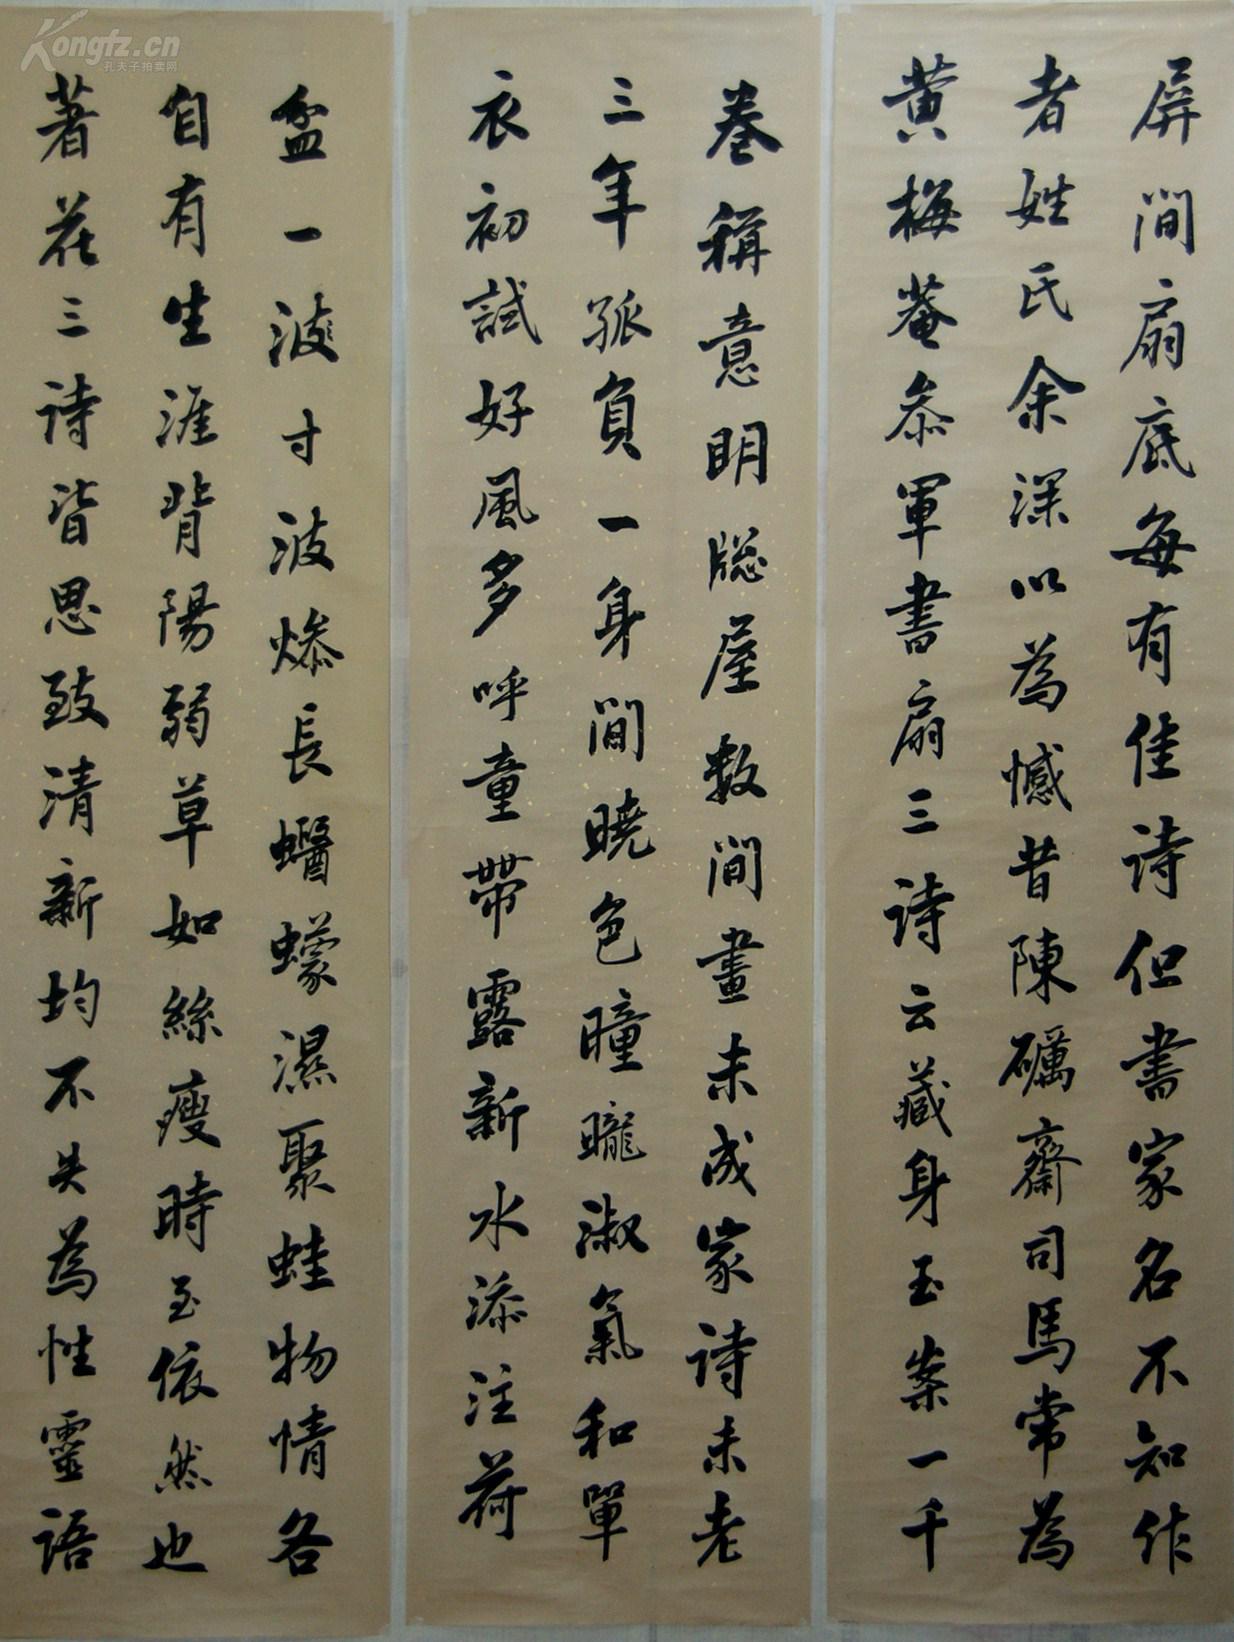 屏間扇底每有佳詩但書家名不知作
者姓氏余深以為憾昔陳礪齋司馬常為
黄梅菴叅軍書扇三詩云藏身玉案一千
卷稱意明牕屋數間畫未成家詩未老
三年孤負一身間曉色曈曨淑氣和單
衣初試好風多呼童帶露新水添注荷
盆一波寸波燖長蠟蠓濕聚蛙物情各
自有生涯背陽弱草如絲瘦時至依然也
著花三詩皆思致清新均不失為性靈語
Kongfz.cn
孔夫子拍卖网